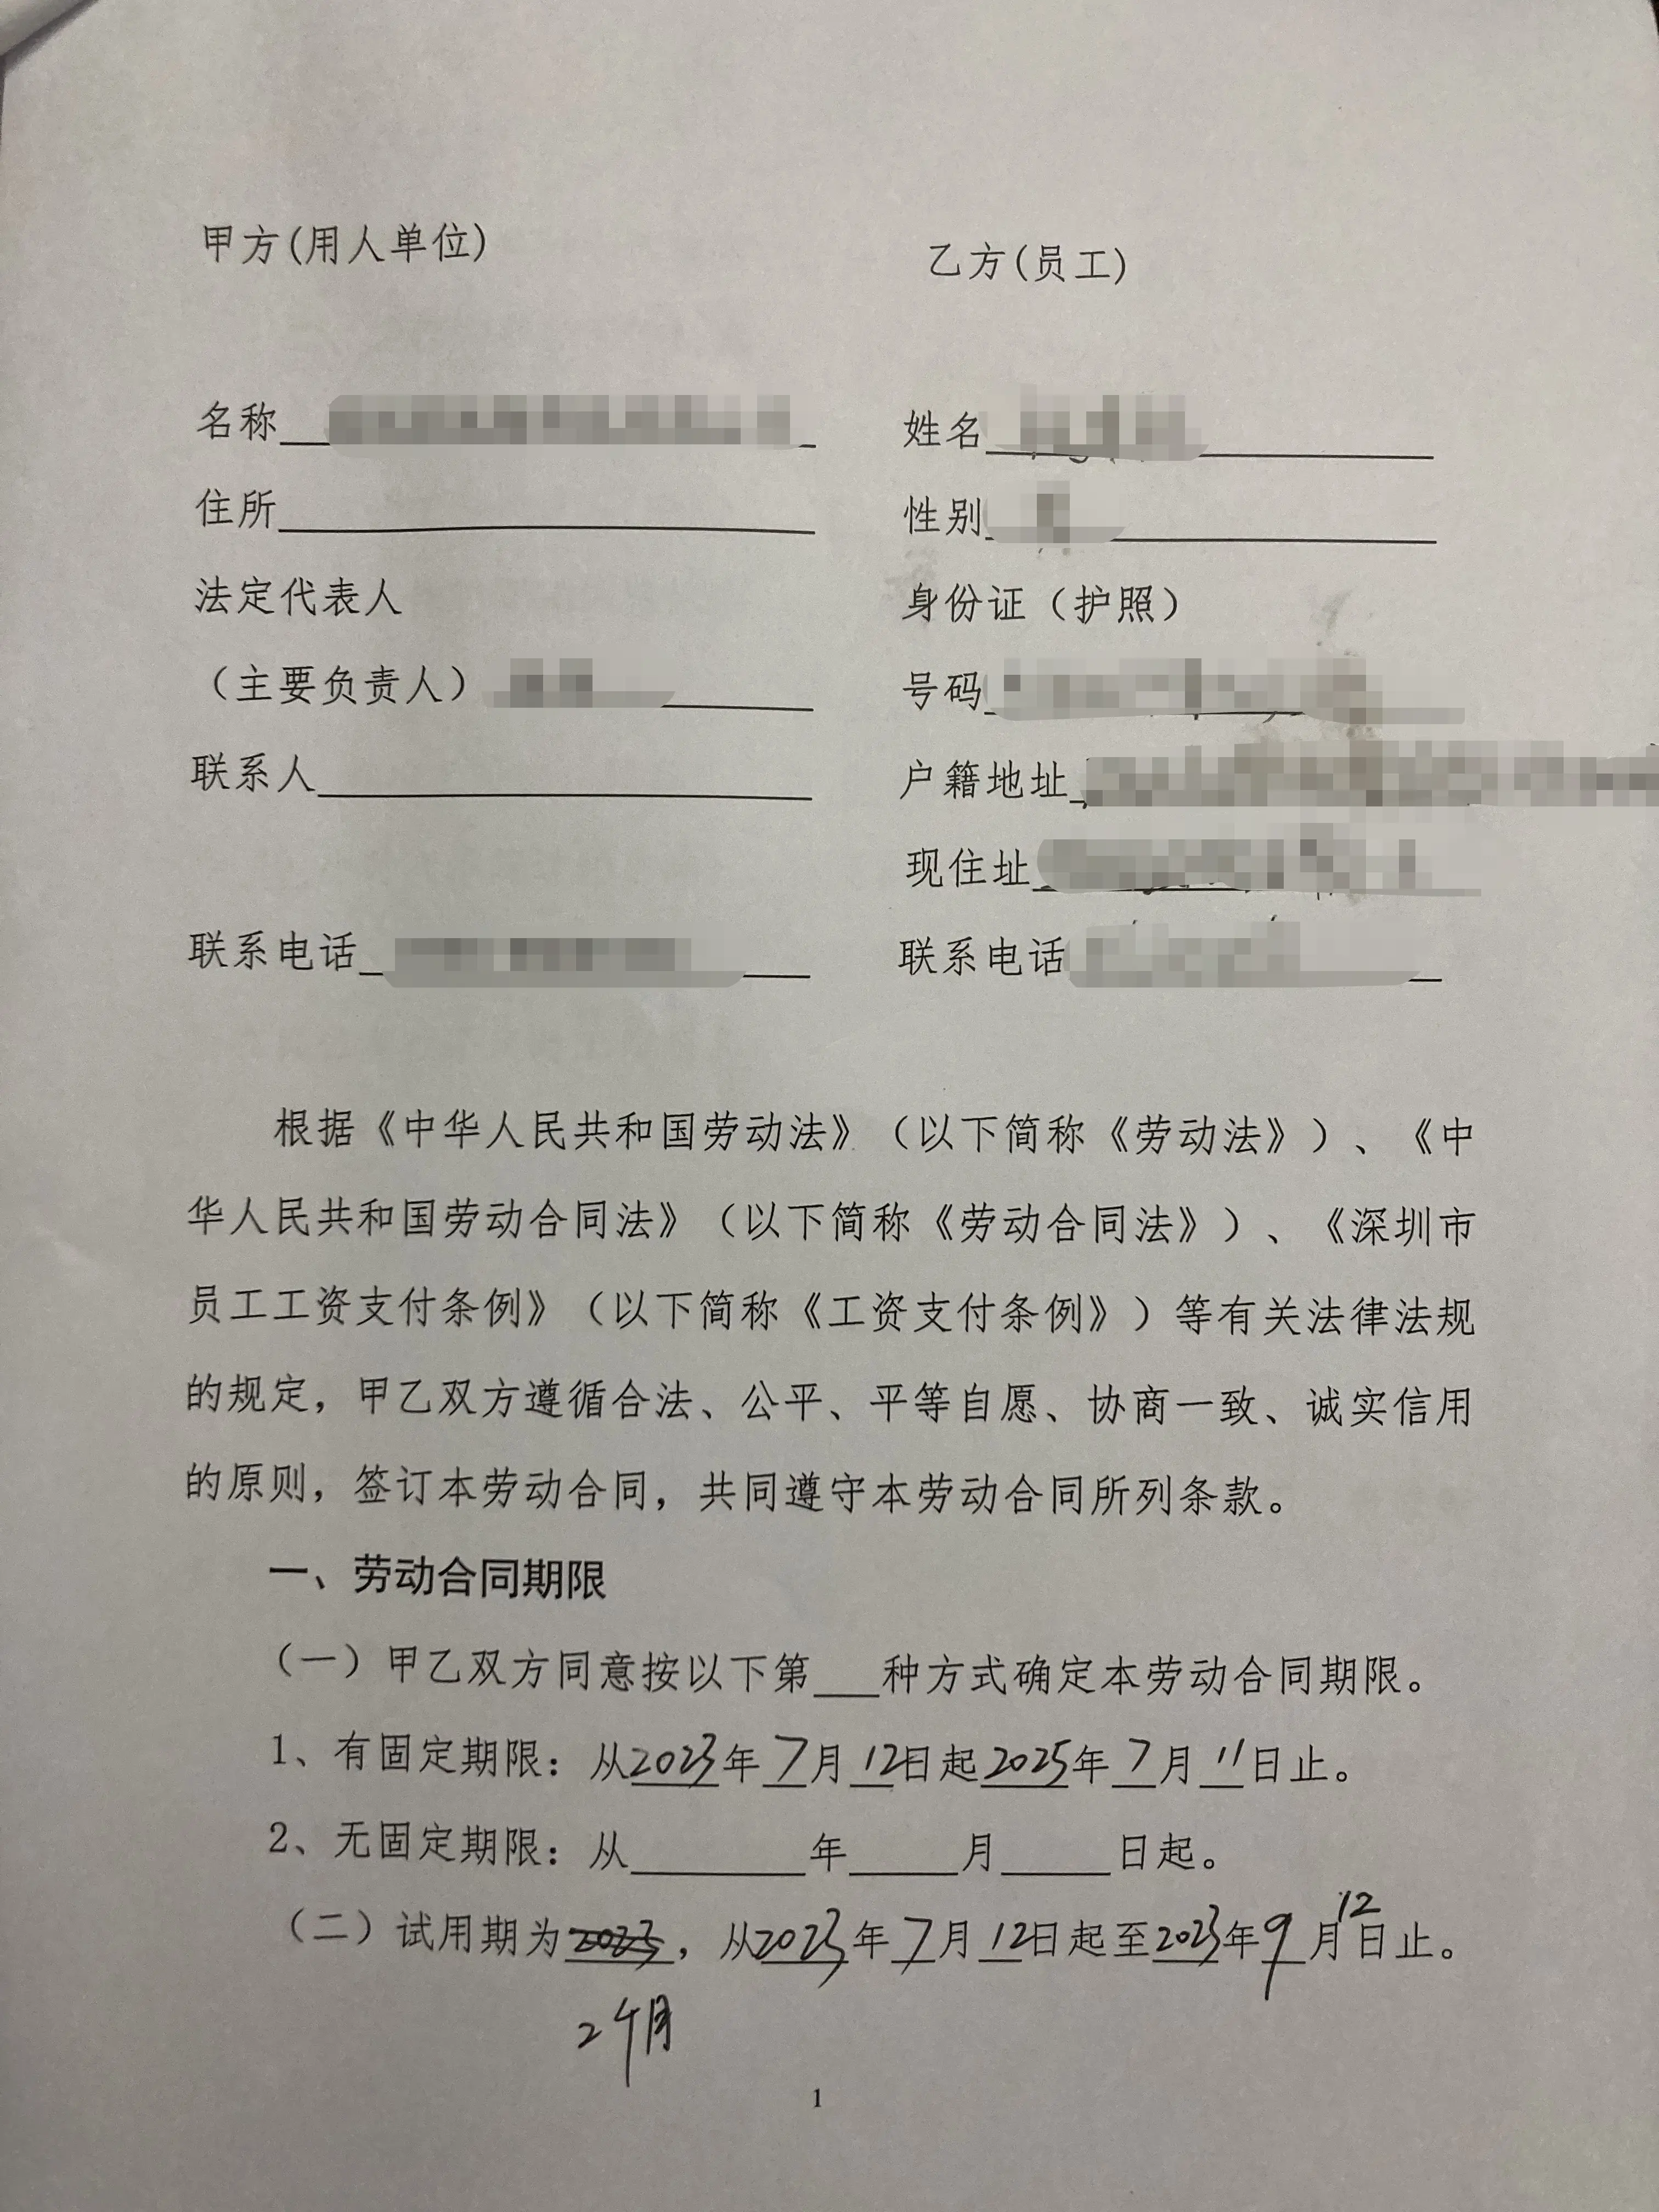 甲方(用人单位) 乙方(员工)
名称 姓名
住所 性别
法定代表人 身份证（护照）
（主要负责人） 号码
联系人 户籍地址
现住址
联系电话 联系电话
根据《中华人民共和国劳动法》（以下简称《劳动法》）、《中
华人民共和国劳动合同法》（以下简称《劳动合同法》）、《深圳市
员工工资支付条例》（以下简称《工资支付条例》）等有关法律法规
的规定，甲乙双方遵循合法、公平、平等自愿、协商一致、诚实信用
的原则，签订本劳动合同，共同遵守本劳动合同所列条款。
一、劳动合同期限
（一）甲乙双方同意按以下第___种方式确定本劳动合同期限。
1、有固定期限：从2023年7月12日起2025年7月11日止。
2、无固定期限：从________年_____月_____日起。
（二）试用期为2023，从2023年7月12日起至2023年9月12日止。
2个月
1